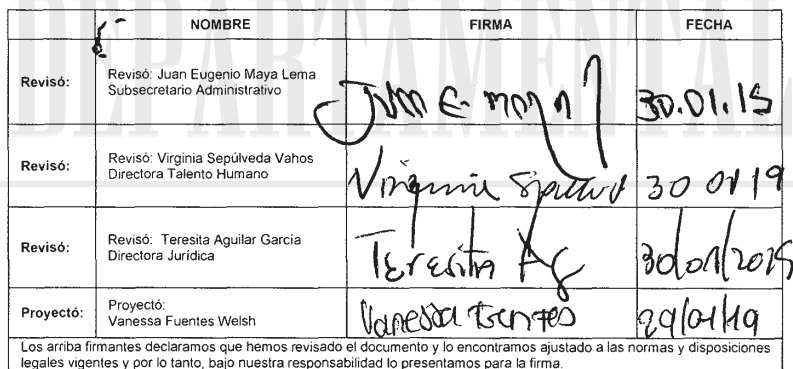 DEPARTAMENTAL
NOMBRE FIRMA FECHA
Revisó: Revisó: Juan Eugenio Maya Lema
Subsecretario Administrativo
Juan E. Maya 30.01.19
Revisó: Revisó: Virginia Sepúlveda Vahos
Directora Talento Humano
Virginia 30 01 19
Revisó: Revisó: Teresita Aguilar García
Directora Jurídica
Teresita Ag 30/01/2019
Proyectó: Proyectó:
Vanessa Fuentes Welsh
Vanessa Fuentes 29/01/19
Los arriba firmantes declaramos que hemos revisado el documento y lo encontramos ajustado a las normas y disposiciones
legales vigentes y por lo tanto, bajo nuestra responsabilidad lo presentamos para la firma.